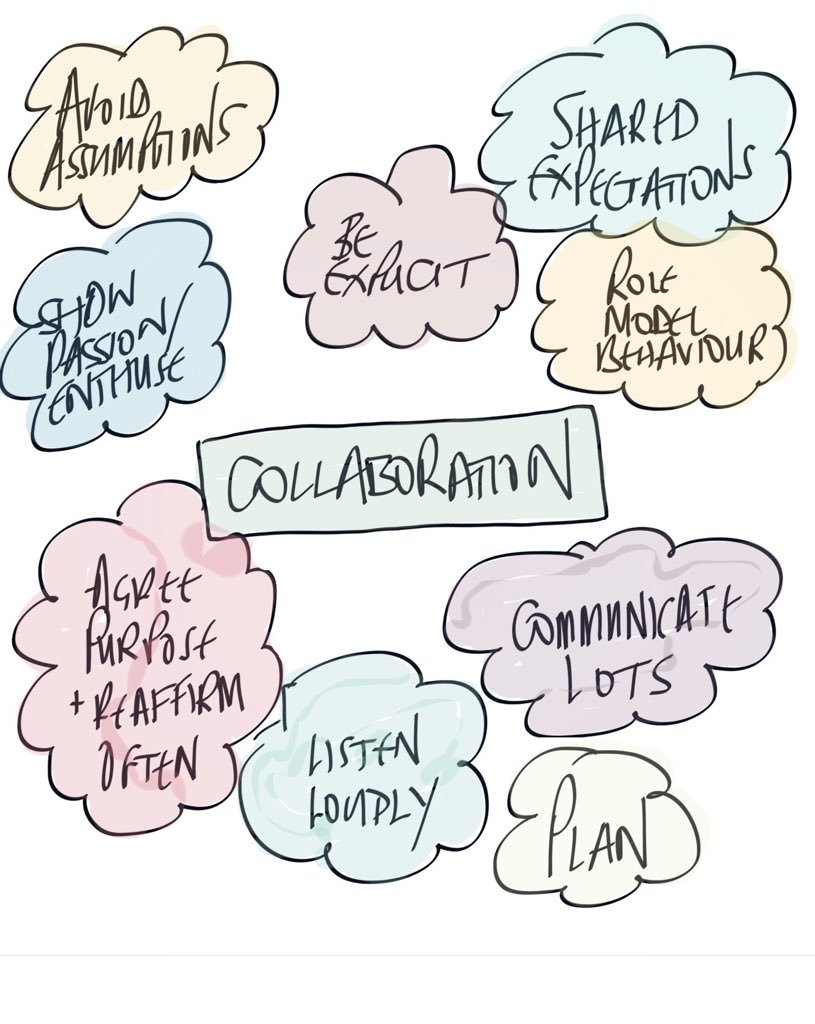 AVOID
ASSUMPTIONS
SHARED
EXPECTATIONS
BE
EXPLICIT
SHOW
PASSION/
ENTHUSE
ROLE
MODEL
BEHAVIOUR
COLLABORATION
AGREE
PURPOSE
+ REAFFIRM
OFTEN
COMMUNICATE
LOTS
LISTEN
LOUDLY
PLAN